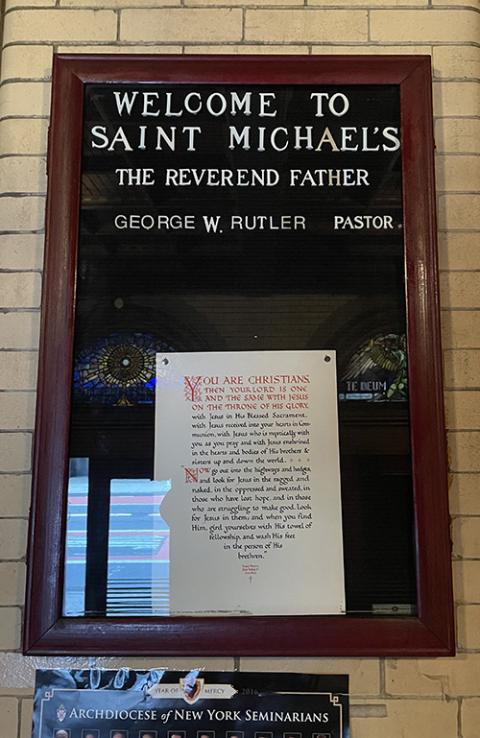 WELCOME TO
SAINT MICHAEL'S
THE REVEREND FATHER
GEORGE W. RUTLER PASTOR
TE DEUM
YOU ARE CHRISTIANS,
THEN YOUR LORD IS ONE
AND THE SAME WITH JESUS
ON THE THRONE OF HIS GLORY,
with Jesus in His Blessed Sacrament,
with Jesus received into your hearts in Com-
munion, with Jesus who is mystically with
you as you pray, and with Jesus enshrined
in the hearts and bodies of His brothers &
sisters up and down the world.
NOW go out into the highways and hedges,
and look for Jesus in the ragged and
naked, in the oppressed and sweated, in
those who have lost hope, and in those
who are struggling to make good. Look
for Jesus in them; and when you find
Him, gird yourselves with His towel of
fellowship, and wash His feet
in the person of His
brethren."
YEAR OF MERCY 2016
ARCHDIOCESE of NEW YORK SEMINARIANS